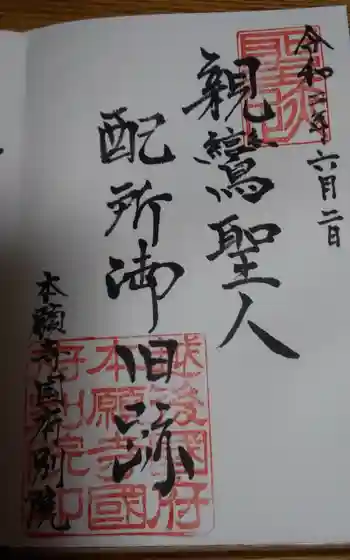 令和二年六月二日
聖跡
親鸞聖人
配所御旧跡
越後國府
本願寺國
府別院印
本願寺国府別院